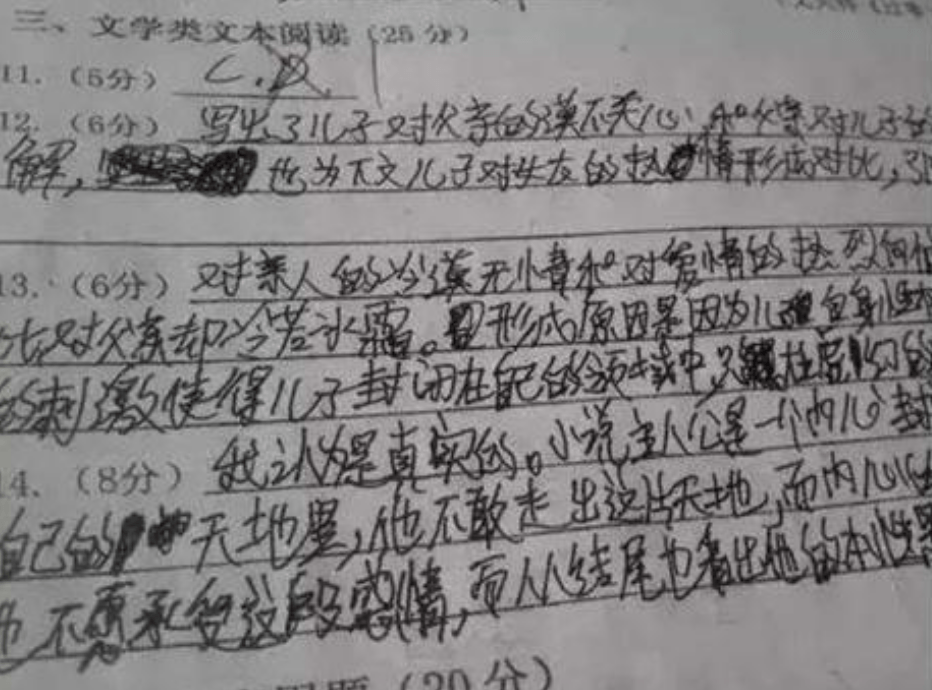 三、文学类文本阅读（25分）
11.（5分） C.D
12.（6分） 写出了儿子对父亲的漠不关心，和父亲对儿子的
解， 也为下文儿子对女友的热情形成对比，引
13.（6分） 对亲人的冷漠无情和对爱情的热烈向往
比对父亲却冷若冰霜。形成原因是因为儿 自身性
的刺激使得儿子封闭在自己的领域中，只 的
14.（8分） 我认为是真实的。小说主人公是一个内心封
自己的 天地里，他不敢走出这片天地，而内心
也不愿承受这段感情，而从结尾也看出他的本性
题（20分）